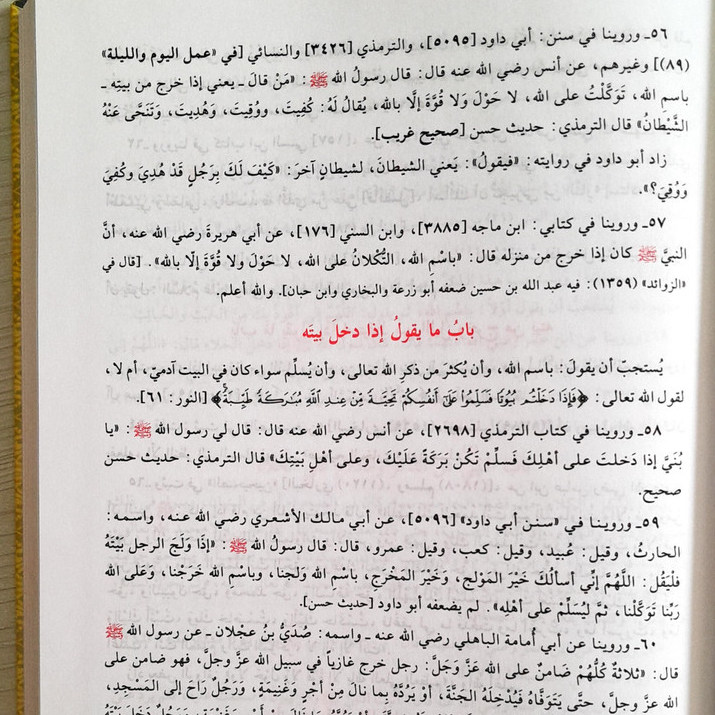 ٥٦ـ وروينا في سنن: أبي داود [٥٠٩٥]، والترمذي [٣٤٢٦] والنسائي [في «عمل اليوم والليلة»
(٨٩)] وغيرهم، عن أنس رضي الله عنه قال: قال رسولُ الله ﷺ: «مَنْ قالَ ـ يعني إذا خرج من بيتِه ـ
باسم الله، تَوَكَّلْتُ على الله، لا حَوْلَ وَلا قُوَّةَ إلَّا بالله، يُقالُ لَهُ: كُفِيتَ، ووُقِيتَ، وَهُدِيتَ، وَتَنَحَّى عَنْهُ
الشَّيْطانُ» قال الترمذي: حديث حسن [صحيح غريب].
زاد أبو داود في روايته: «فيقولُ»: يَعني الشيطانَ، لشيطانٍ آخرَ: «كَيْفَ لَكَ بِرَجُلٍ قَدْ هُدِيَ وكُفِيَ
وَوُقِيَ؟».
٥٧ـ وروينا في كتابي: ابن ماجه [٣٨٨٥]، وابن السني [١٧٦]، عن أبي هريرةَ رضي الله عنه، أنَّ
النبيَّ ﷺ كان إذا خرج من منزله قال: «باسْمِ الله، التُّكْلانُ على الله، لا حَوْلَ ولا قُوَّةَ إلّا بالله». [قال في
«الزوائد» (١٣٥٩): فيه عبد الله بن حسين ضعفه أبو زرعة والبخاري وابن حبان]. والله أعلم.
بابُ ما يقولُ إذا دخلَ بيتَه
يُستحبّ أن يقولَ: باسم الله، وأن يُكثرَ من ذكرِ الله تعالى، وأن يُسلِّم سواء كان في البيت آدميّ، أم لا،
لقول الله تعالى: ﴿فَإِذَا دَخَلْتُم بُيُوتًا فَسَلِّمُوا عَلَىٰ أَنفُسِكُمْ تَحِيَّةً مِّنْ عِندِ اللَّهِ مُبَارَكَةً طَيِّبَةً﴾ [النور: ٦١].
٥٨ـ وروينا في كتاب الترمذي [٢٦٩٨]، عن أنس رضي الله عنه قال: قال لي رسول الله ﷺ: «يا
بُنَيَّ إذا دَخلتَ على أهْلِكَ فَسلِّمْ تَكُنْ بَرَكَةً عَلَيْكَ، وعلى أهْلِ بَيْتِكَ» قال الترمذي: حديث حسن
صحيح.
٥٩ـ وروينا في «سنن أبي داود» [٥٠٩٦]، عن أبي مالك الأشعري رضي الله عنه، واسمه:
الحارثُ، وقيل: عُبيد، وقيل: كعب، وقيل: عمرو، قال: قال رسولُ الله ﷺ: «إذَا وَلَجَ الرجل بَيْتَهُ
فلْيَقُل: اللَّهُمَّ إنّي أسألُكَ خَيْرَ المَوْلجِ، وَخَيْرَ المَخْرَجِ، باسْمِ الله وَلجنا، وباسْمِ الله خَرَجْنا، وَعَلى الله
رَبِّنا تَوَكَّلْنا، ثمَّ ليُسَلِّمْ على أهْلِه». لم يضعفه أبو داود [حديث حسن].
٦٠ـ وروينا عن أبي أمامة الباهلي رضي الله عنه ـ واسمه: صُدَيُّ بنُ عجْلان ـ عن رسول الله ﷺ
قال: «ثلاثةٌ كلُّهُمْ ضَامنٌ على الله عَزَّ وَجَلَّ: رجل خرج غازياً في سبيل الله عزَّ وجلَّ، فهو ضامن على
الله عزَّ وجلَّ، حتَّى يَتَوَفَّاهُ فَيُدْخِلَهُ الجَنَّةَ، أوْ يَرُدَّهُ بِما نالَ مِنْ أجْرٍ وَغَنِيمَةٍ، وَرَجُلٌ رَاحَ إلى المَسْجِدِ،